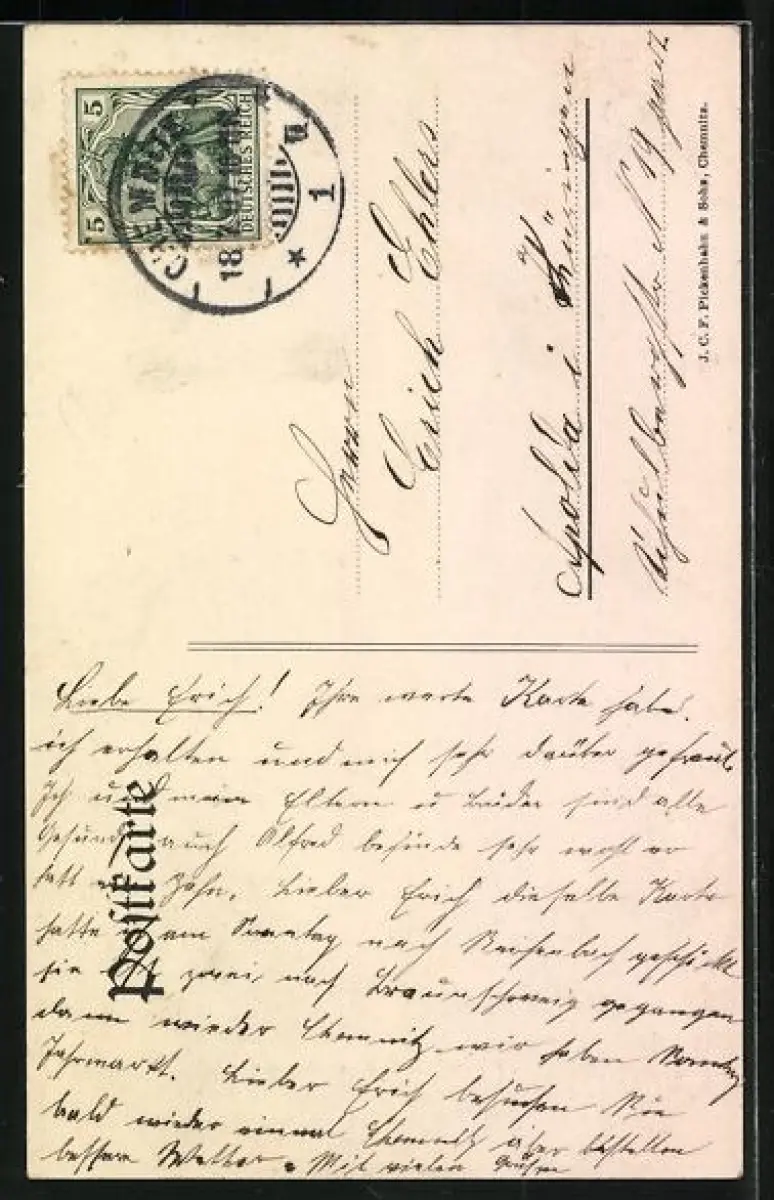 5 5
DEUTSCHES REICH
CHEMNITZ
18
* 1
Postkarte
Herrn
Erich Ehlers
Apolda i Thüringen
N 19 part.
J. C. F. Pickenhahn & Sohn, Chemnitz.
Liebe Erich! Ihre werte Karte habe
ich erhalten und mich sehr darüber gefreut
Ich und meine Eltern u Brüder sind alle
Gesund auch Alfred befinde sehr wohl er
hatt Zahn. Lieber Erich dieselbe Karte
hatte am Sonntag nach Reichenbach geschickt
sie ist nach Braunschweig gegangen
dann wieder Chemnitz wir haben Sonntag
Jahrmarkt. Lieber Erich besuchen Sie
bald wieder einmal Chemnitz aber bestellen
besseres Wetter. Mit vielen Grüßen